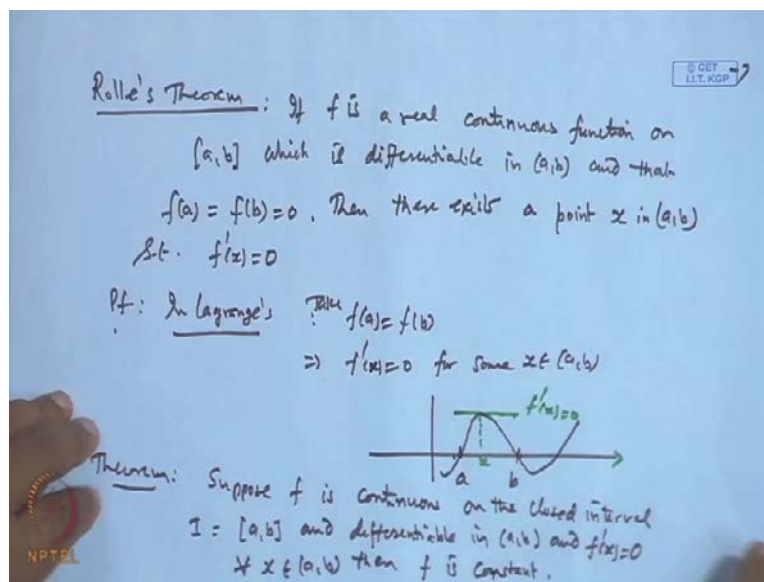 © CET
I.I.T. KGP
Rolle's Theorem : If f is a real continuous function on
[a,b] which is differentiable in (a,b) and that
f(a) = f(b) = 0. Then there exists a point x in (a,b)
S.t. f'(x) = 0
Pf : In Lagrange's Take f(a) = f(b)
⇒ f'(x) = 0 for some x ∈ (a,b)
f'(x) = 0
a x b
Theorem : Suppose f is continuous on the closed interval
I = [a,b] and differentiable in (a,b) and f'(x) = 0
∀ x ∈ (a,b) then f is constant.
NPTEL